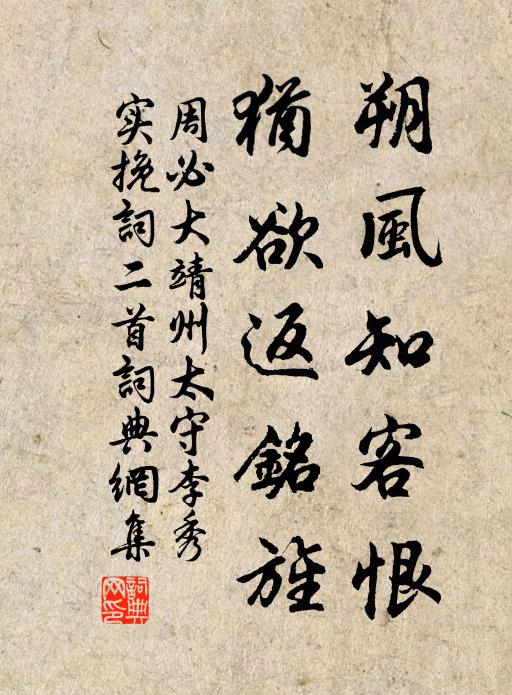 朔風知客恨
猶欲返銘旌
周必大靖州太守李秀
实挽詞二首詞典網集
詞典網印